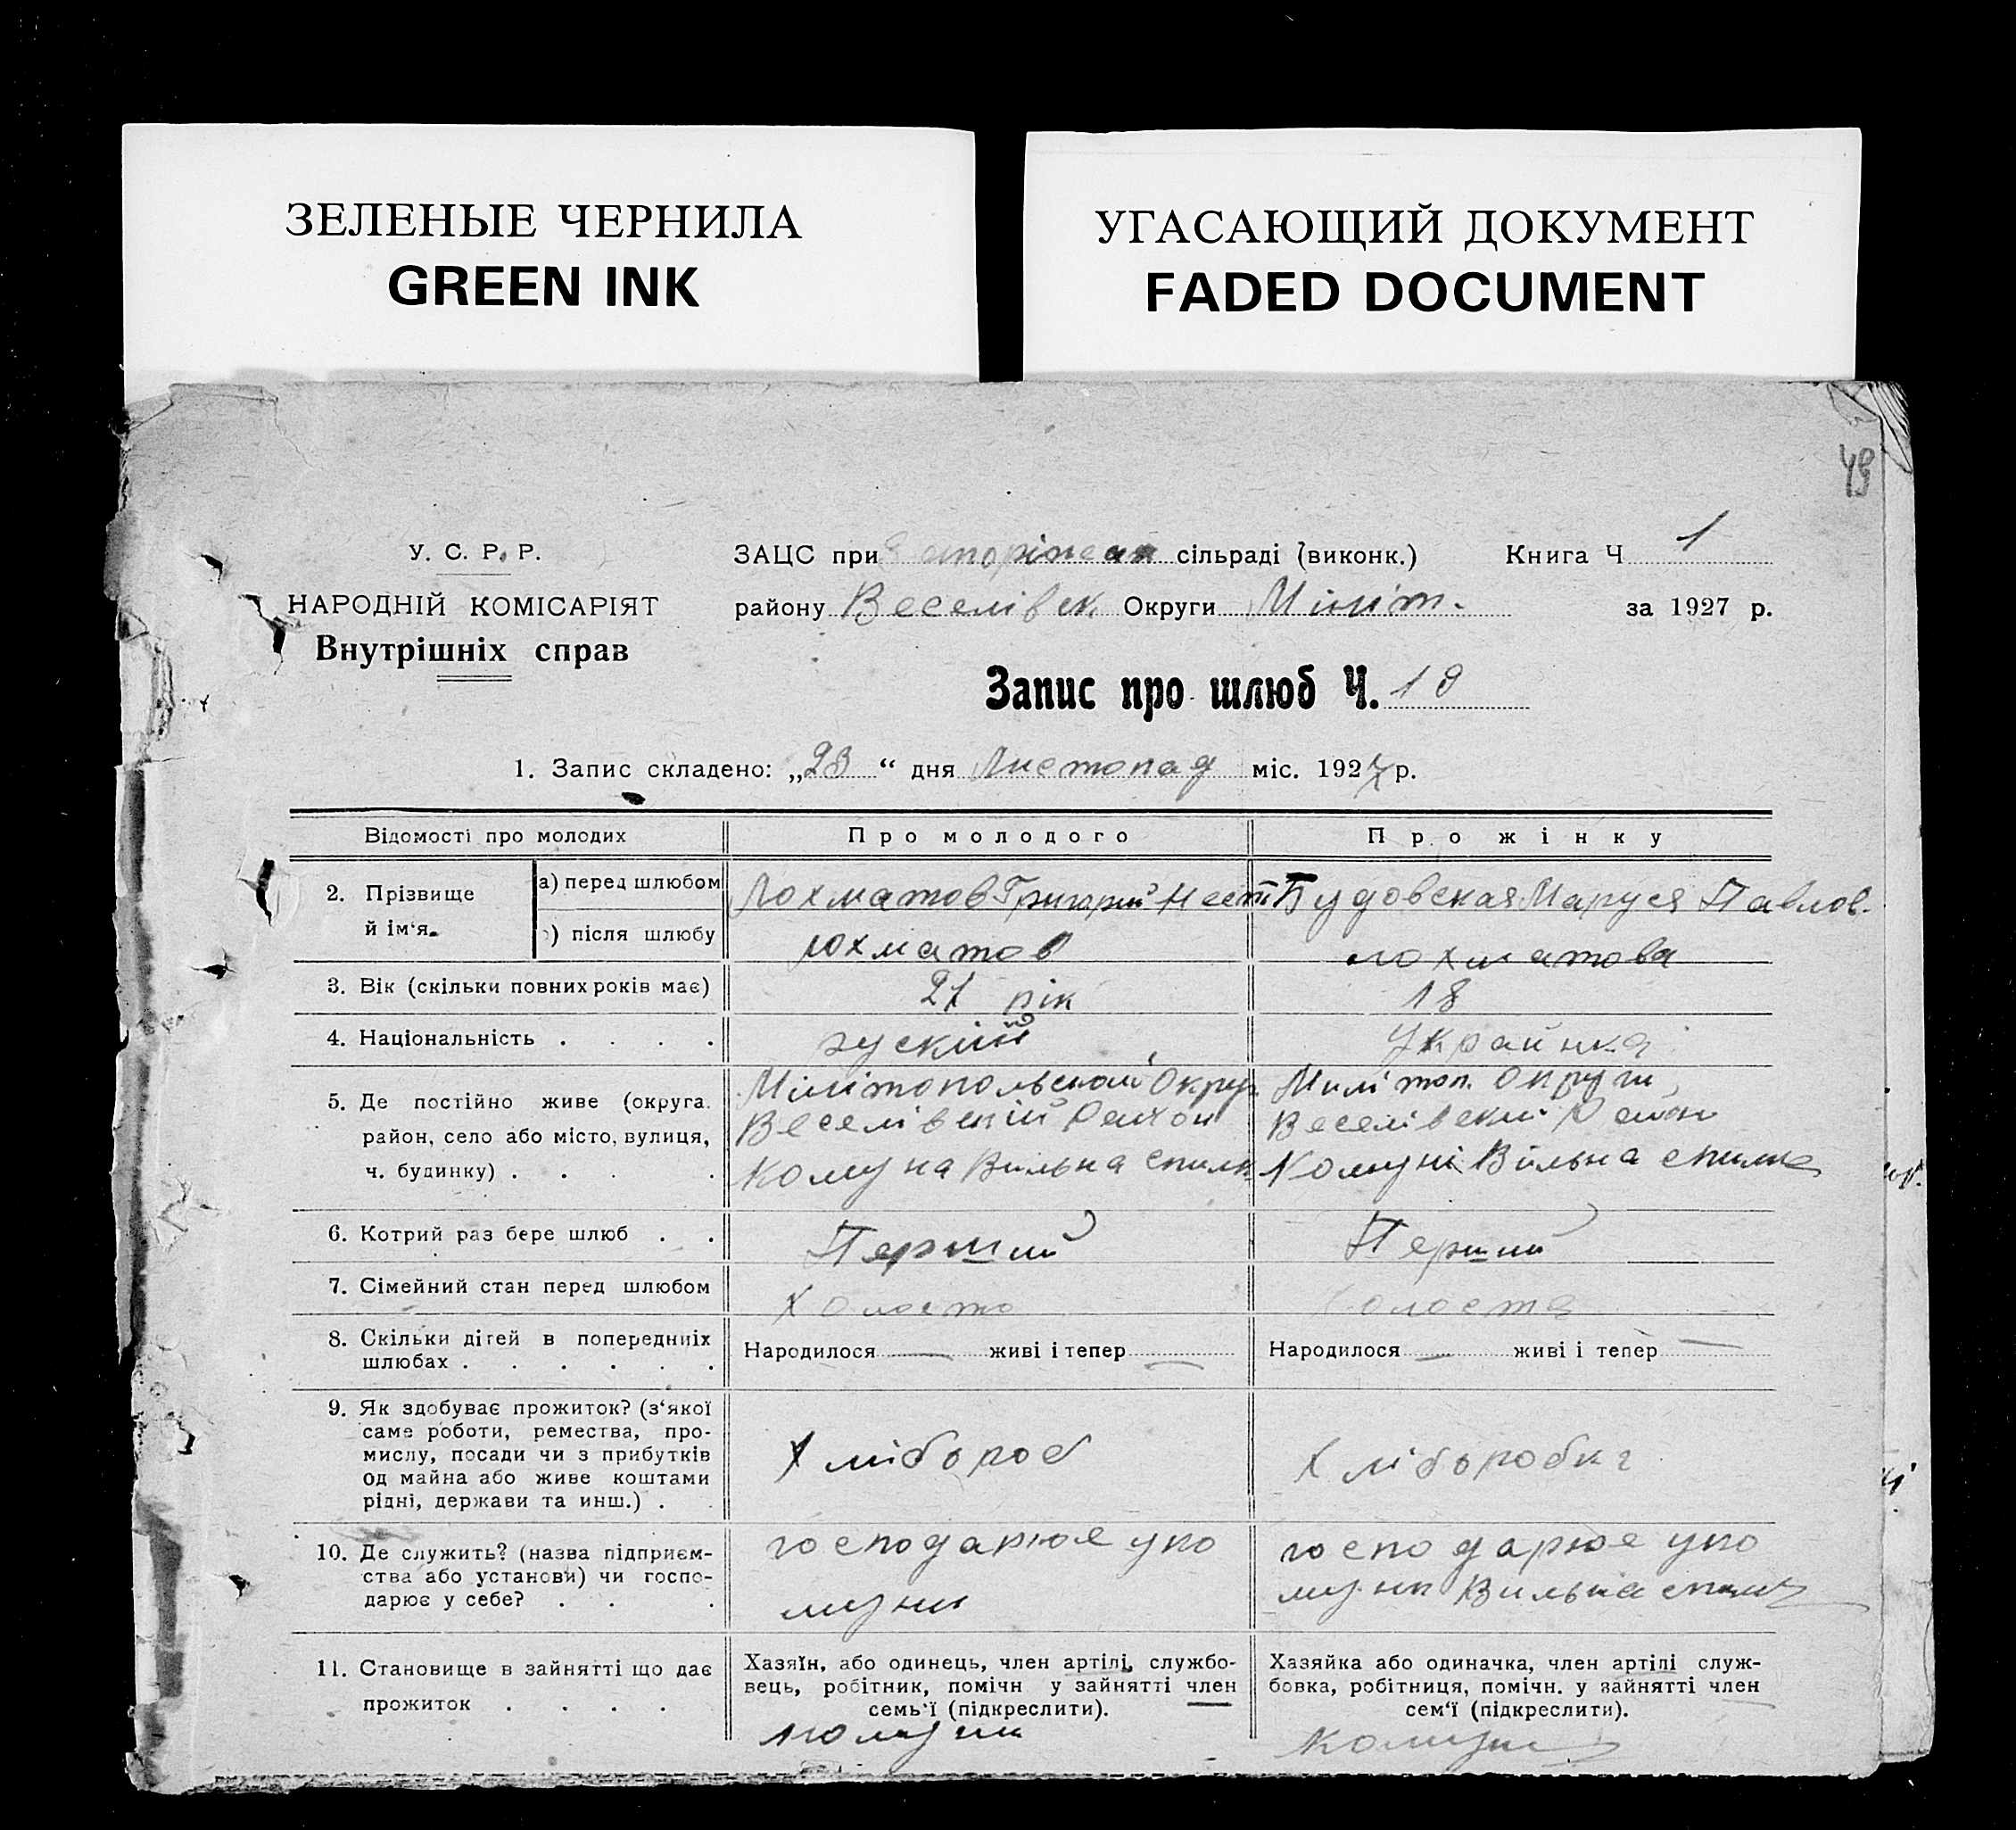 ЗЕЛЕНЫЕ ЧЕРНИЛА
GREEN INK
УГАСАЮЩИЙ ДОКУМЕНТ
FADED DOCUMENT
49
У. С. Р. Р.
НАРОДНІЙ КОМІСАРІЯТ
Внутрішніх справ
ЗАЦС при сільраді (виконк.) Книга Ч 1
району Веселівск Округи Міліт. за 1927 р.
Запис про шлюб Ч. 19
1. Запис складено: „23“ дня Листопад міс. 1927 р.
Відомості про молодих Про молодого Про жінку
2. Прізвище й ім‘я.
а) перед шлюбом Лохматов Григорий Нест Будовская Маруся Павлов.
б) після шлюбу лохматов лохматова
3. Вік (скільки повних років має) 21 рік 18
4. Національність . . . . руский Украйнка
5. Де постійно живе (округа. район, село або місто, вулиця, ч. будинку) . . . .
Мілітопольской Округ
Веселівский Район
Комуна Вильна спилк
Милітоп. Округи
Веселівский Район
Комуні Вильна спилка
6. Котрий раз бере шлюб . . Перший Перший
7. Сімейний стан перед шлюбом Холосто Холоста
8. Скільки дітей в попередниіх шлюбах . . . . . .
Народилося — живі і тепер — Народилося — живі і тепер —
9. Як здобуває прожиток? (з‘якої
саме роботи, ремества, про-
мислу, посади чи з прибутків
од майна або живе коштами
рідні, держави та инш.) .
Хлібороб Хліборобка
10. Де служить? (назва підприєм-
ства або установи) чи госпо-
дарює у себе? . . .
господарюе уко
муни
господарюе уко
муни Вильна спилк
11. Становище в зайнятті що дає
прожиток . . . .
Хазяїн, або одинець, член артілі, службо-
вець, робітник, помічн у зайнятті член
семь‘ї (підкреслити).
комуни
Хазяйка або одиначка, член артілі служ-
бовка, робітниця, помічн. у зайнятті член
сем‘ї (підкреслити).
комуни